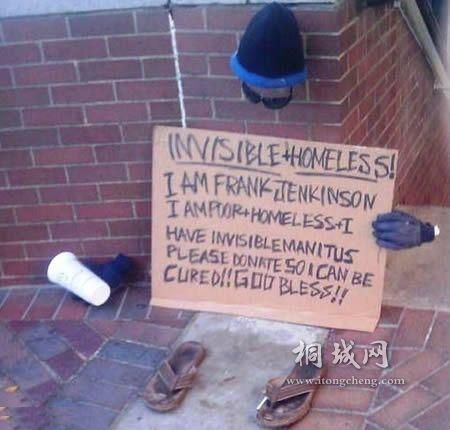 INVISIBLE+HOMELESS!
I AM FRANK JENKINSON
I AM POOR+HOMELESS+I
HAVE INVISIBLEMANITUS
PLEASE DONATE SO I CAN BE
CURED!! GOD BLESS!!
桐城网
www.itongcheng.com